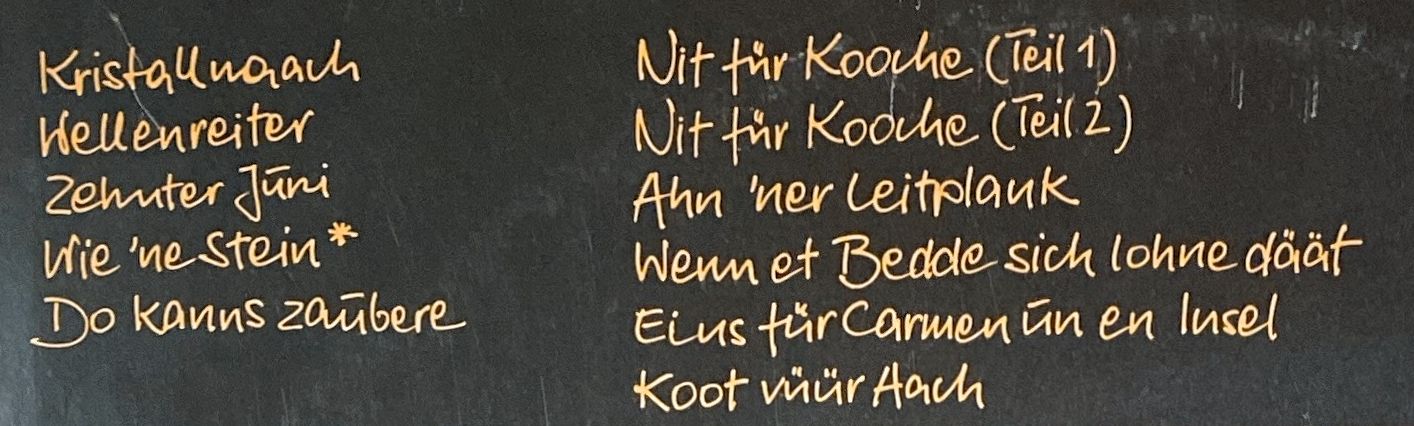 Kristallnaach
Wellenreiter
Zehnter Juni
Wie 'ne Stein*
Do kanns zaubere
Nit für Kooche (Teil 1)
Nit für Kooche (Teil 2)
Ahn 'ner Leitplank
Wenn et Bedde sich lohne däät
Eins für Carmen un en Insel
Koot vüür Aach